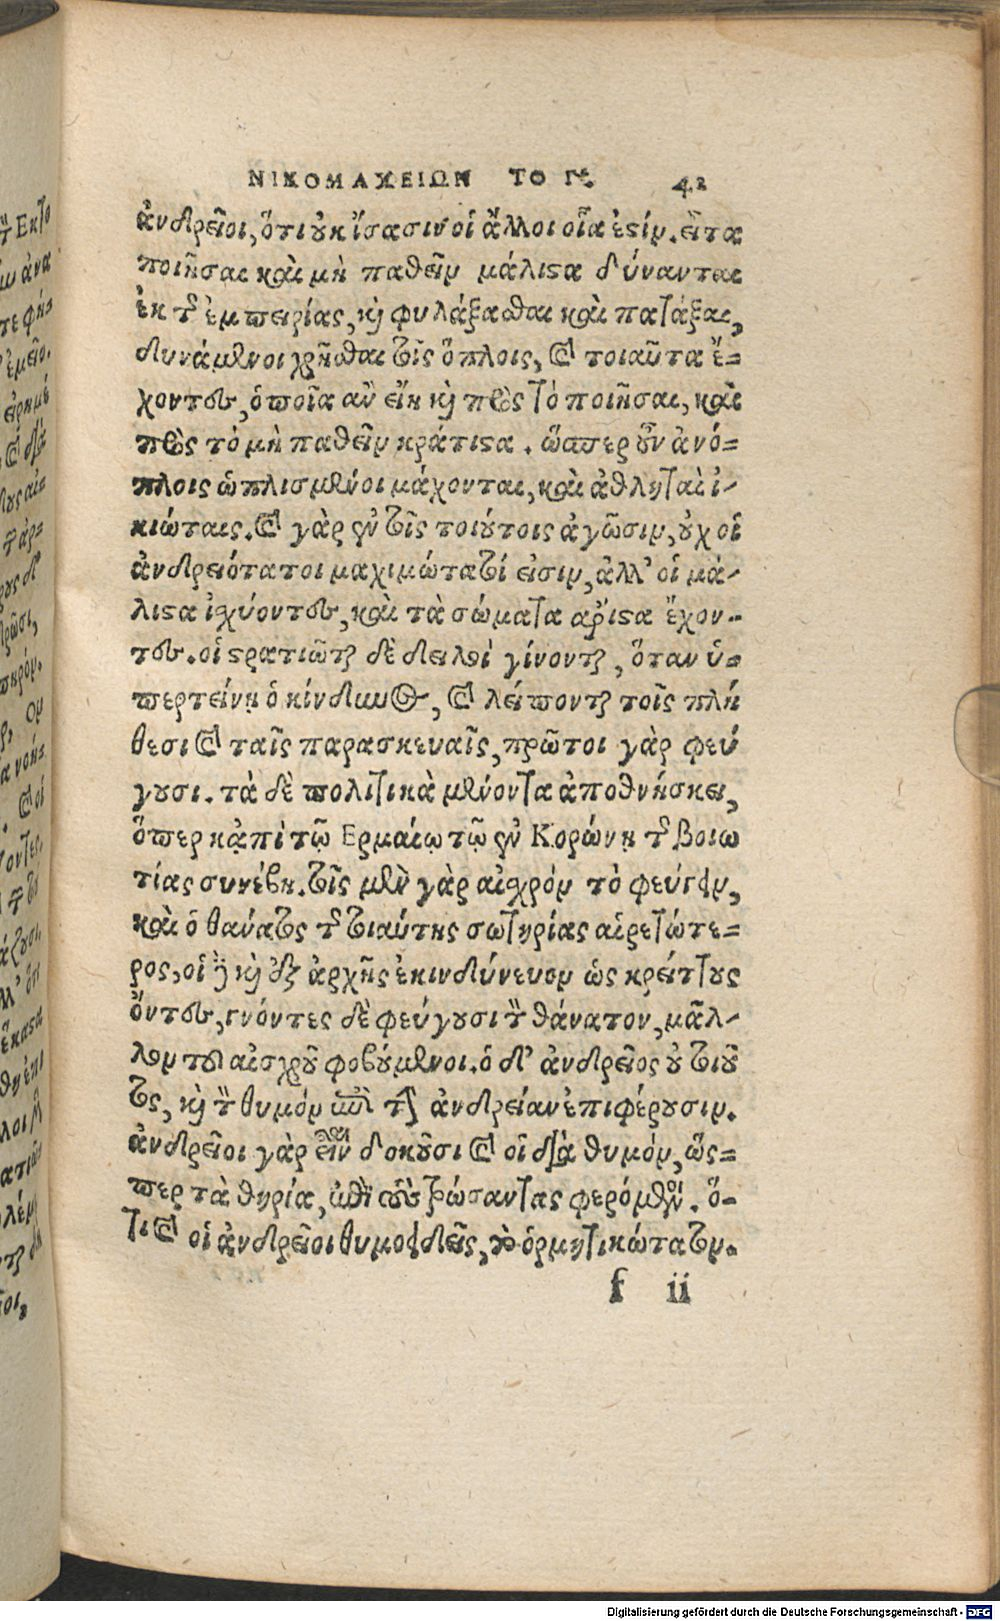 ΝΙΚΟΜΑΧΕΙΩΝ ΤΟ Γ. 42
ἀνδρεῖοι, ὅτι οὐκ ἴσασιν οἱ ἄλλοι οἷα ἐστίν. εἶτα
ποιῆσαι καὶ μὴ παθεῖν μάλιστα δύνανται
ἐκ τῆς ἐμπειρίας, καὶ φυλάξασθαι καὶ πατάξαι,
δυνάμενοι χρῆσθαι τοῖς ὅπλοις, καὶ τοιαῦτα ἔ-
χοντες, ὁποῖα ἂν εἴη καὶ πρὸς τὸ ποιῆσαι, καὶ
πρὸς τὸ μὴ παθεῖν κράτιστα. ὥσπερ οὖν ἀνό-
πλοις ὡπλισμένοι μάχονται, καὶ ἀθληταὶ ἰ-
διώταις. καὶ γὰρ ἐν τοῖς τοιούτοις ἀγῶσιν, οὐχ οἱ
ἀνδρειότατοι μαχιμώτατοί εἰσιν, ἀλλ' οἱ μά-
λιστα ἰσχύοντες, καὶ τὰ σώματα ἄριστα ἔχον-
τες. οἱ στρατιῶται δὲ δειλοὶ γίνονται, ὅταν ὑ-
περτείνῃ ὁ κίνδυνος, καὶ λείπονται τοῖς πλή
θεσι καὶ ταῖς παρασκευαῖς, πρῶτοι γὰρ φεύ
γουσι. τὰ δὲ πολιτικὰ μένοντα ἀποθνήσκει,
ὅπερ κἀπὶ τῷ Ερμαίῳ τῷ ἐν Κορώνῃ τῆς βοιω
τίας συνέβη. τοῖς μὲν γὰρ αἰσχρὸν τὸ φεύγειν,
καὶ ὁ θάνατος τῆς τοιαύτης σωτηρίας αἱρετώτε-
ρος, οἱ δὲ καὶ ἐξ ἀρχῆς ἐκινδύνευον ὡς κρείττους
ὄντες, γνόντες δὲ φεύγουσι τὸν θάνατον, μᾶλ-
λον τοῦ αἰσχροῦ φοβούμενοι. ὁ δ' ἀνδρεῖος οὐ τοιοῦ
τος, καὶ τὸν θυμὸν ἐπὶ τὴν ἀνδρείαν ἐπιφέρουσιν.
ἀνδρεῖοι γὰρ εἶναι δοκοῦσι καὶ οἱ διὰ θυμόν, ὥς-
περ τὰ θηρία, ἐπὶ τοὺς τρώσαντας φερόμενοι. ὅ-
τι καὶ οἱ ἀνδρεῖοι θυμοειδεῖς, ὁρμητικώτατον.
f ii
Digitalisierung gefördert durch die Deutsche Forschungsgemeinschaft - DFG